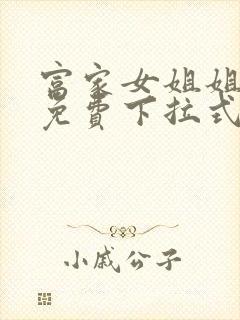 富家女姐姐
免費下拉式
小戚公子